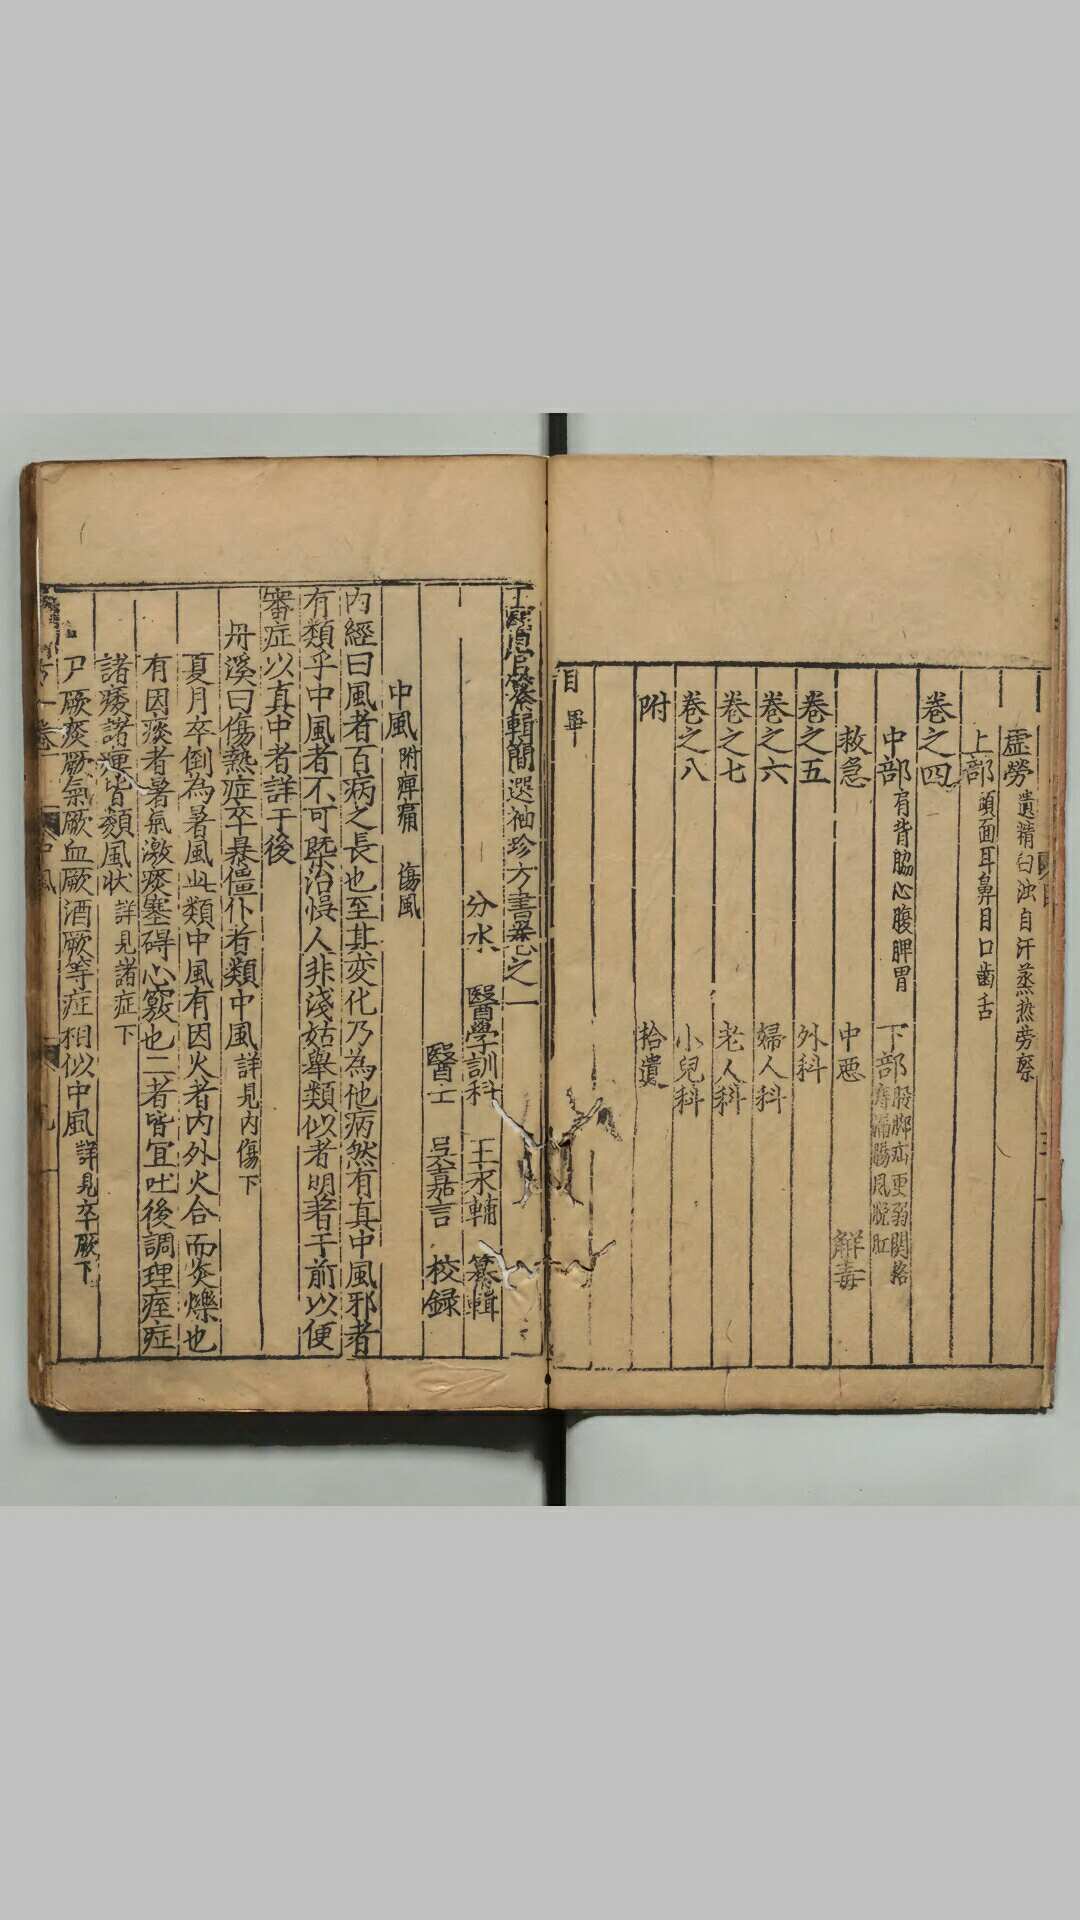 虛勞 遺精白濁自汗蒸热劳瘵
上部 頭面耳鼻目口齒舌
卷之四
中部 肩背脇心腹脾胃 下部 股脚疝便弱関格 痔漏腸風脫肛
救急 中恶 解毒
卷之五 外科
卷之六 婦人科
卷之七 老人科
卷之八 小兒科
附 拾遺
目畢
官纂輯簡選袖珍方書卷之一
分水 醫學訓科 王永輔 纂輯
醫士 吴嘉言 校録
中風 附痺痛 傷風
內經曰風者百病之長也至其変化乃為他病然有真中風邪者
有類乎中風者不可槩治悮人非淺姑舉類似者明著于前以便
審症以真中者詳于後
丹溪曰傷熱症卒暴僵仆者類中風 詳見内傷下
夏月卒倒為暑風此類中風有因火者内外火合而炎爍也
有因痰者暑氣激痰塞碍心竅也二者皆宜吐後調理痓症
諸痿諸痺皆類風状 詳見諸症下
尸厥痰厥氣厥血厥酒厥等症相似中風 詳見卒厥下